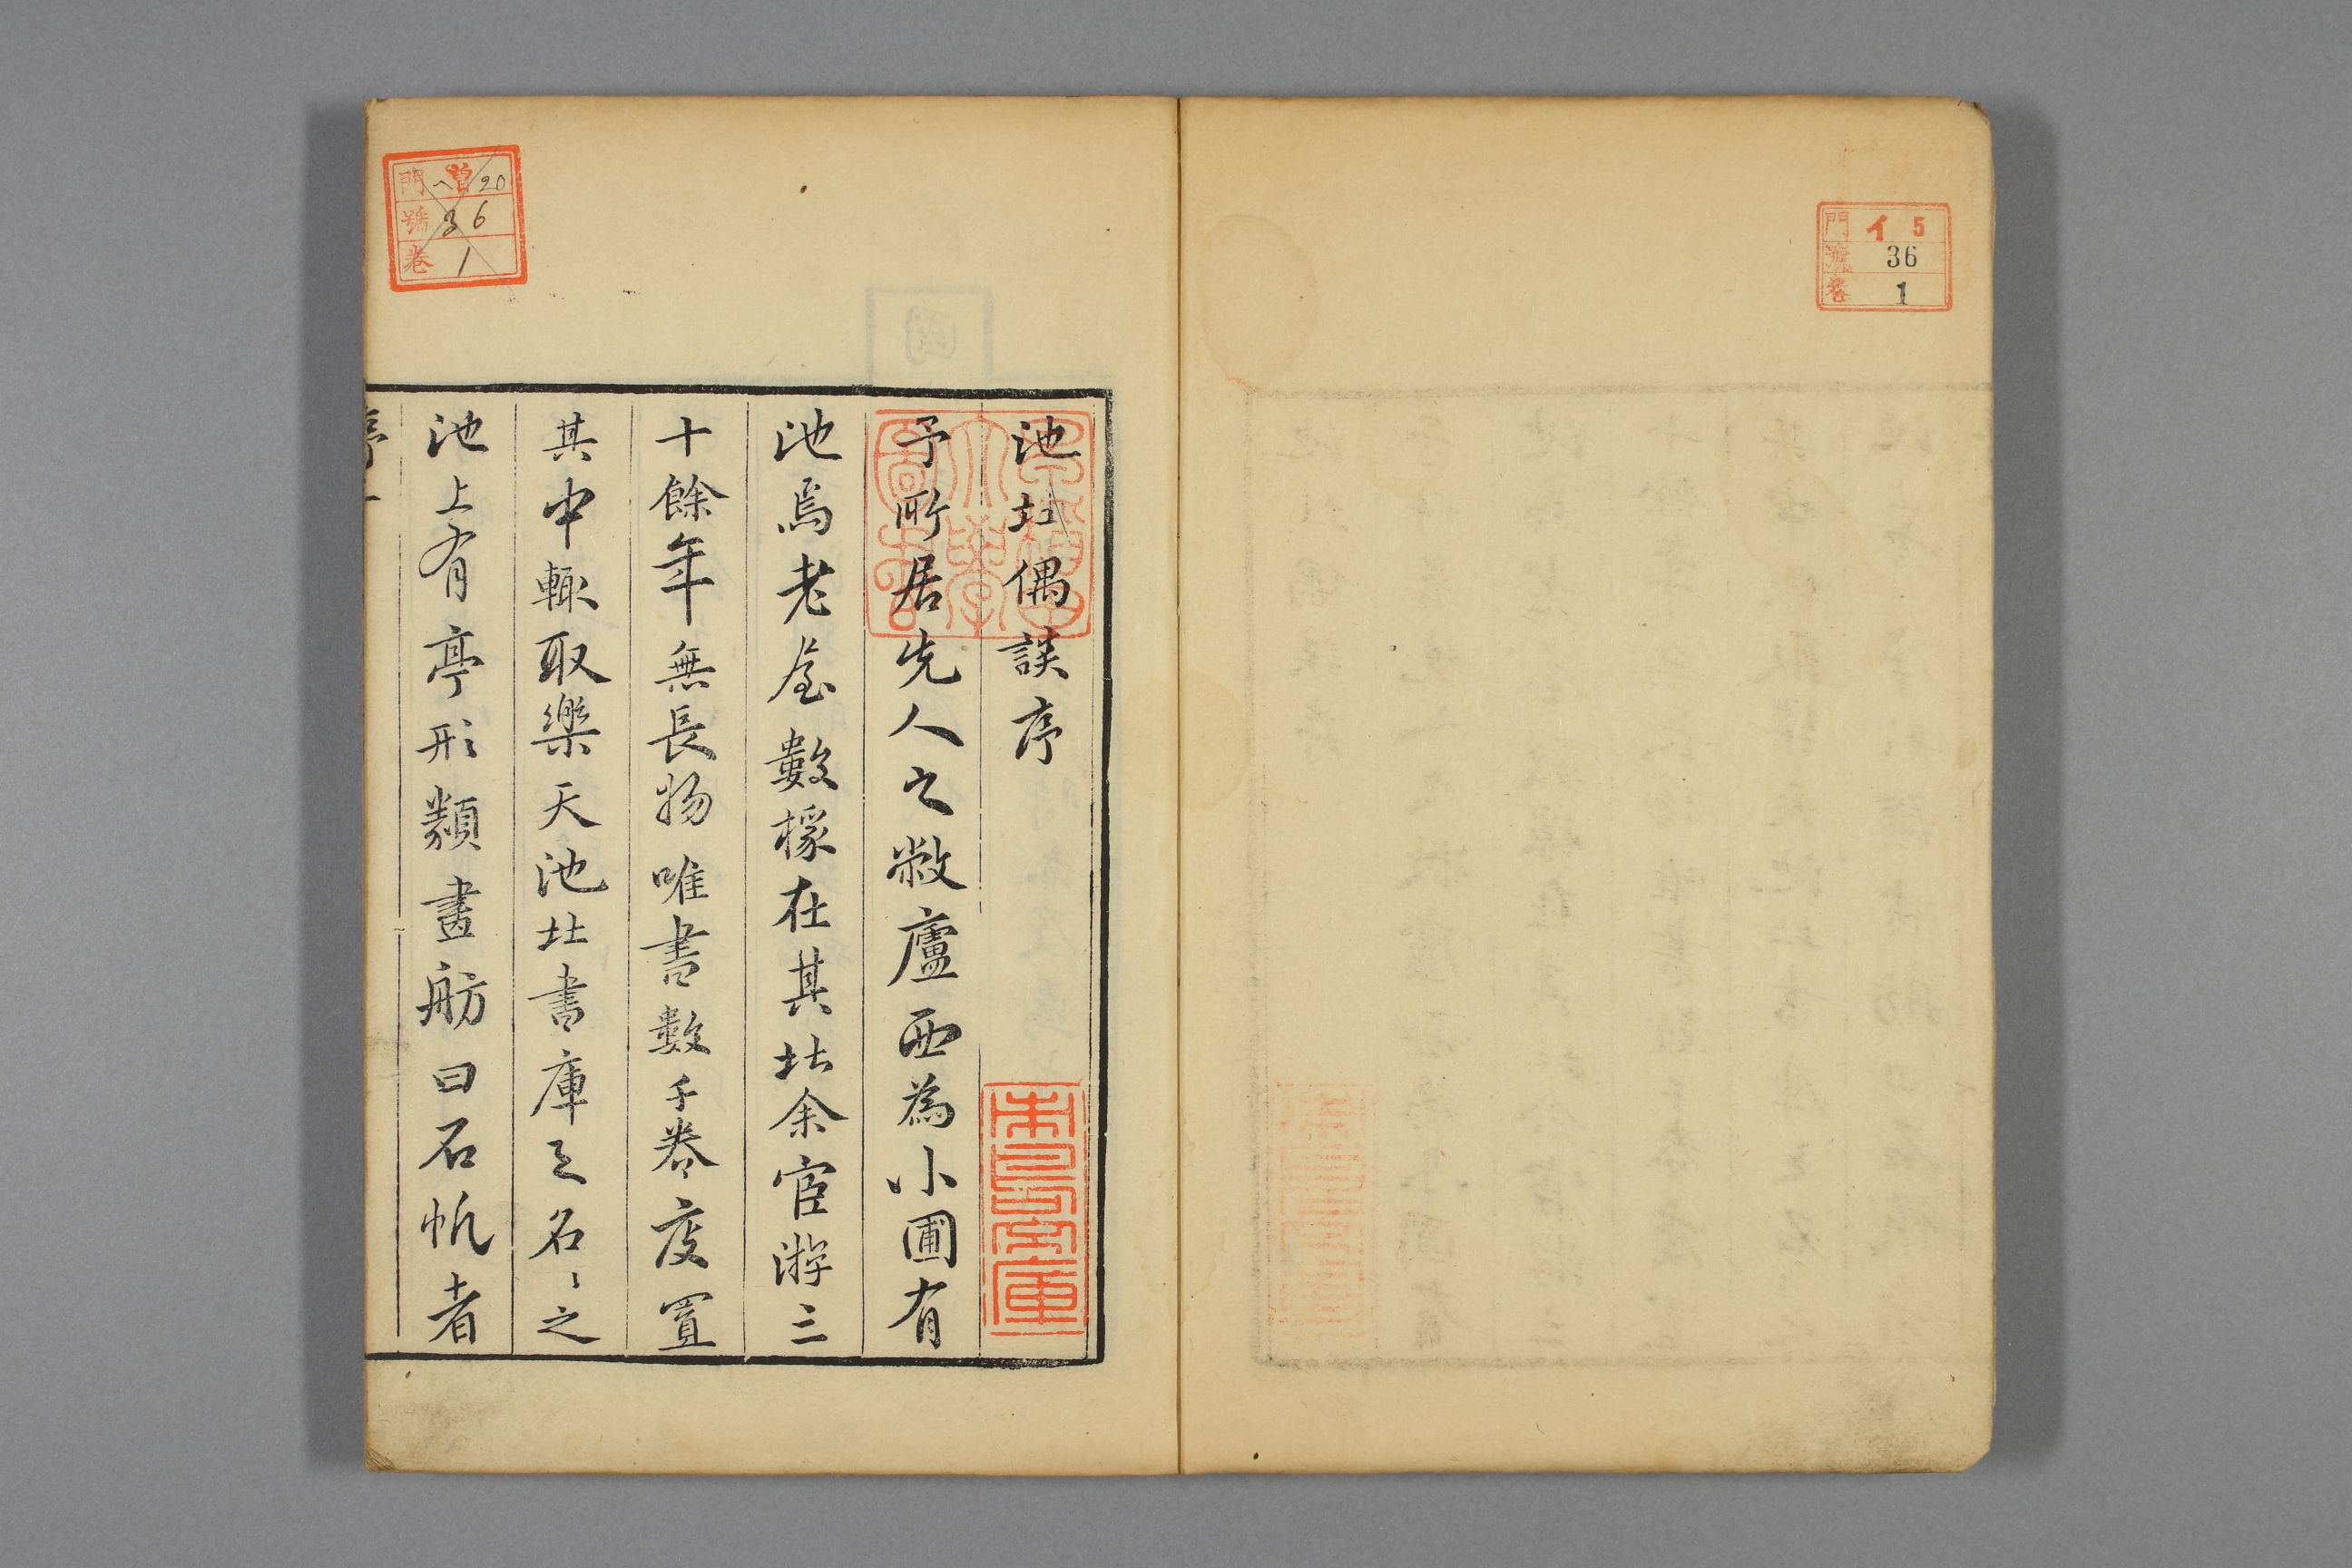 門 イ 5
號 36
卷 1
池北偶談序
予所居先人之敝廬西為小圃有
池焉老屋數椽在其北余宦游三
十餘年無長物唯書數千卷庋置
其中輒取樂天池北書庫之名〻之
池上有亭形類畫舫曰石帆者
早稻田大學圖書
門 ヘ 曾 20
號 36
卷 1